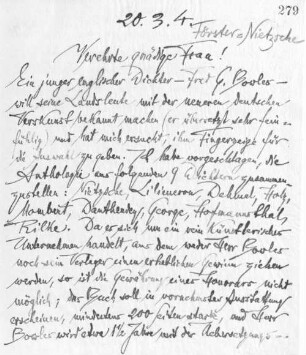 279
20. 3. 4.
Förster=Nietzsche
Verehrte gnädige Frau!
Ein junger englischer Dichter — Fred G. Bowler —
will seine Landsleute mit der neueren deutschen
Verskunst bekannt machen (er übersetzt sehr fein-
fühlig) und hat mich ersucht, ihm Fingerzeige für
die Auswahl zu geben. Ich habe vorgeschlagen, die
Anthologie aus folgenden 9 Dichtern zusammen
zustellen: Nietzsche, Liliencron, Dehmel, Holz,
Mombert, Dauthendey, George, Hofmannsthal,
Rilke. Da es sich um ein rein künstlerisches
Unternehmen handelt, aus dem weder Herr Bowler
noch sein Verleger einen erheblichen Gewinn ziehen
werden, so ist die Gewährung eines Honorars nicht
möglich; das Buch soll in vornehmster Ausstattung
erscheinen, mindestens 200 Seiten stark, und Herr
Bowler wird etwa 1½ Jahre mit der Uebersetzungs-